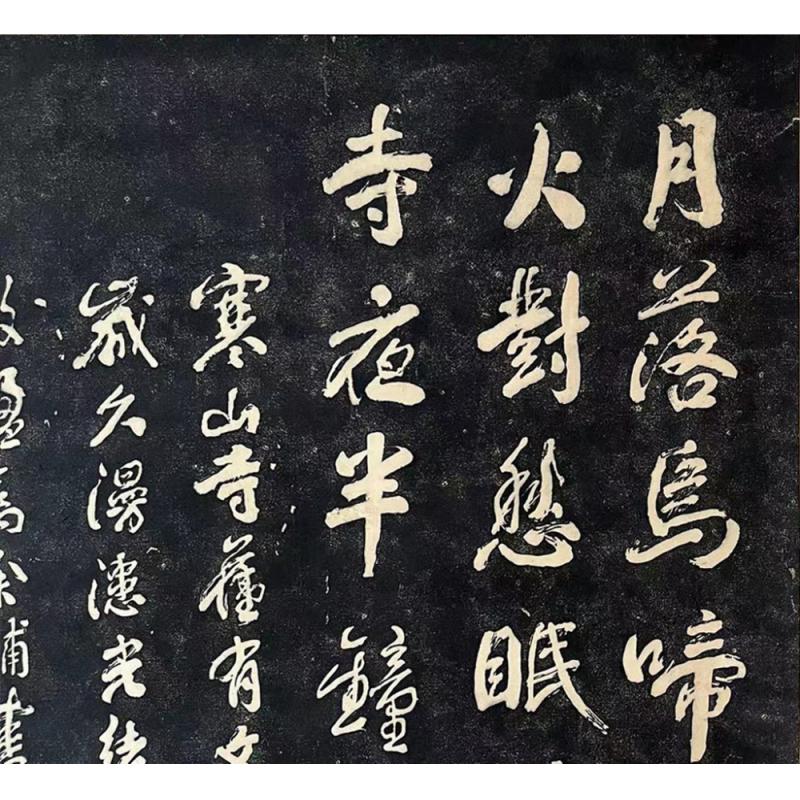 月落烏啼
火對愁眠
寺夜半鐘
寒山寺舊有文
歲久漫漶光緒
屬余補書